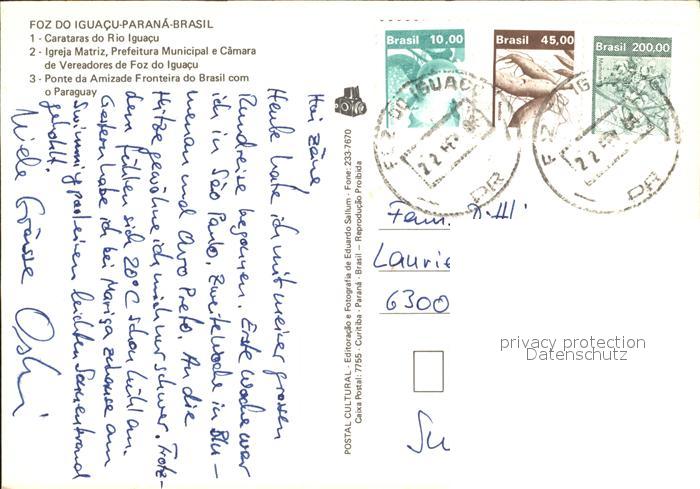 FOZ DO IGUAÇU-PARANÁ-BRASIL
1 - Carataras do Rio Iguaçu
2 - Igreja Matriz, Prefeitura Municipal e Câmara
de Vereadores de Foz do Iguaçu
3 - Ponte da Amizade Fronteira do Brasil com
o Paraguay
Brasil 10,00
Brasil 45,00
Brasil 200,00
Hoi zäme
Heute habe ich mit meiner grossen
Rundreise begonnen. Erste Woche war
ich in São Paulo. Zweite Woche in Blu-
menau und Ouro Preto. An die
Hitze gewöhne ich mich nur schwer. Trotz-
dem fühlen sich 20°C schon kühl an.
Gestern habe ich bei Marisa zuhause am
Swimmingpool einen leichten Sonnenbrand
geholt.
Viele Grüsse
POSTAL CULTURAL - Editoração e Fotografia de Eduardo Sallum - Fone: 233-7670
Caixa Postal: 7755 - Curitiba - Paraná - Brasil - Reprodução Proibida
Fam.
Laurie
6300
privacy protection
Datenschutz